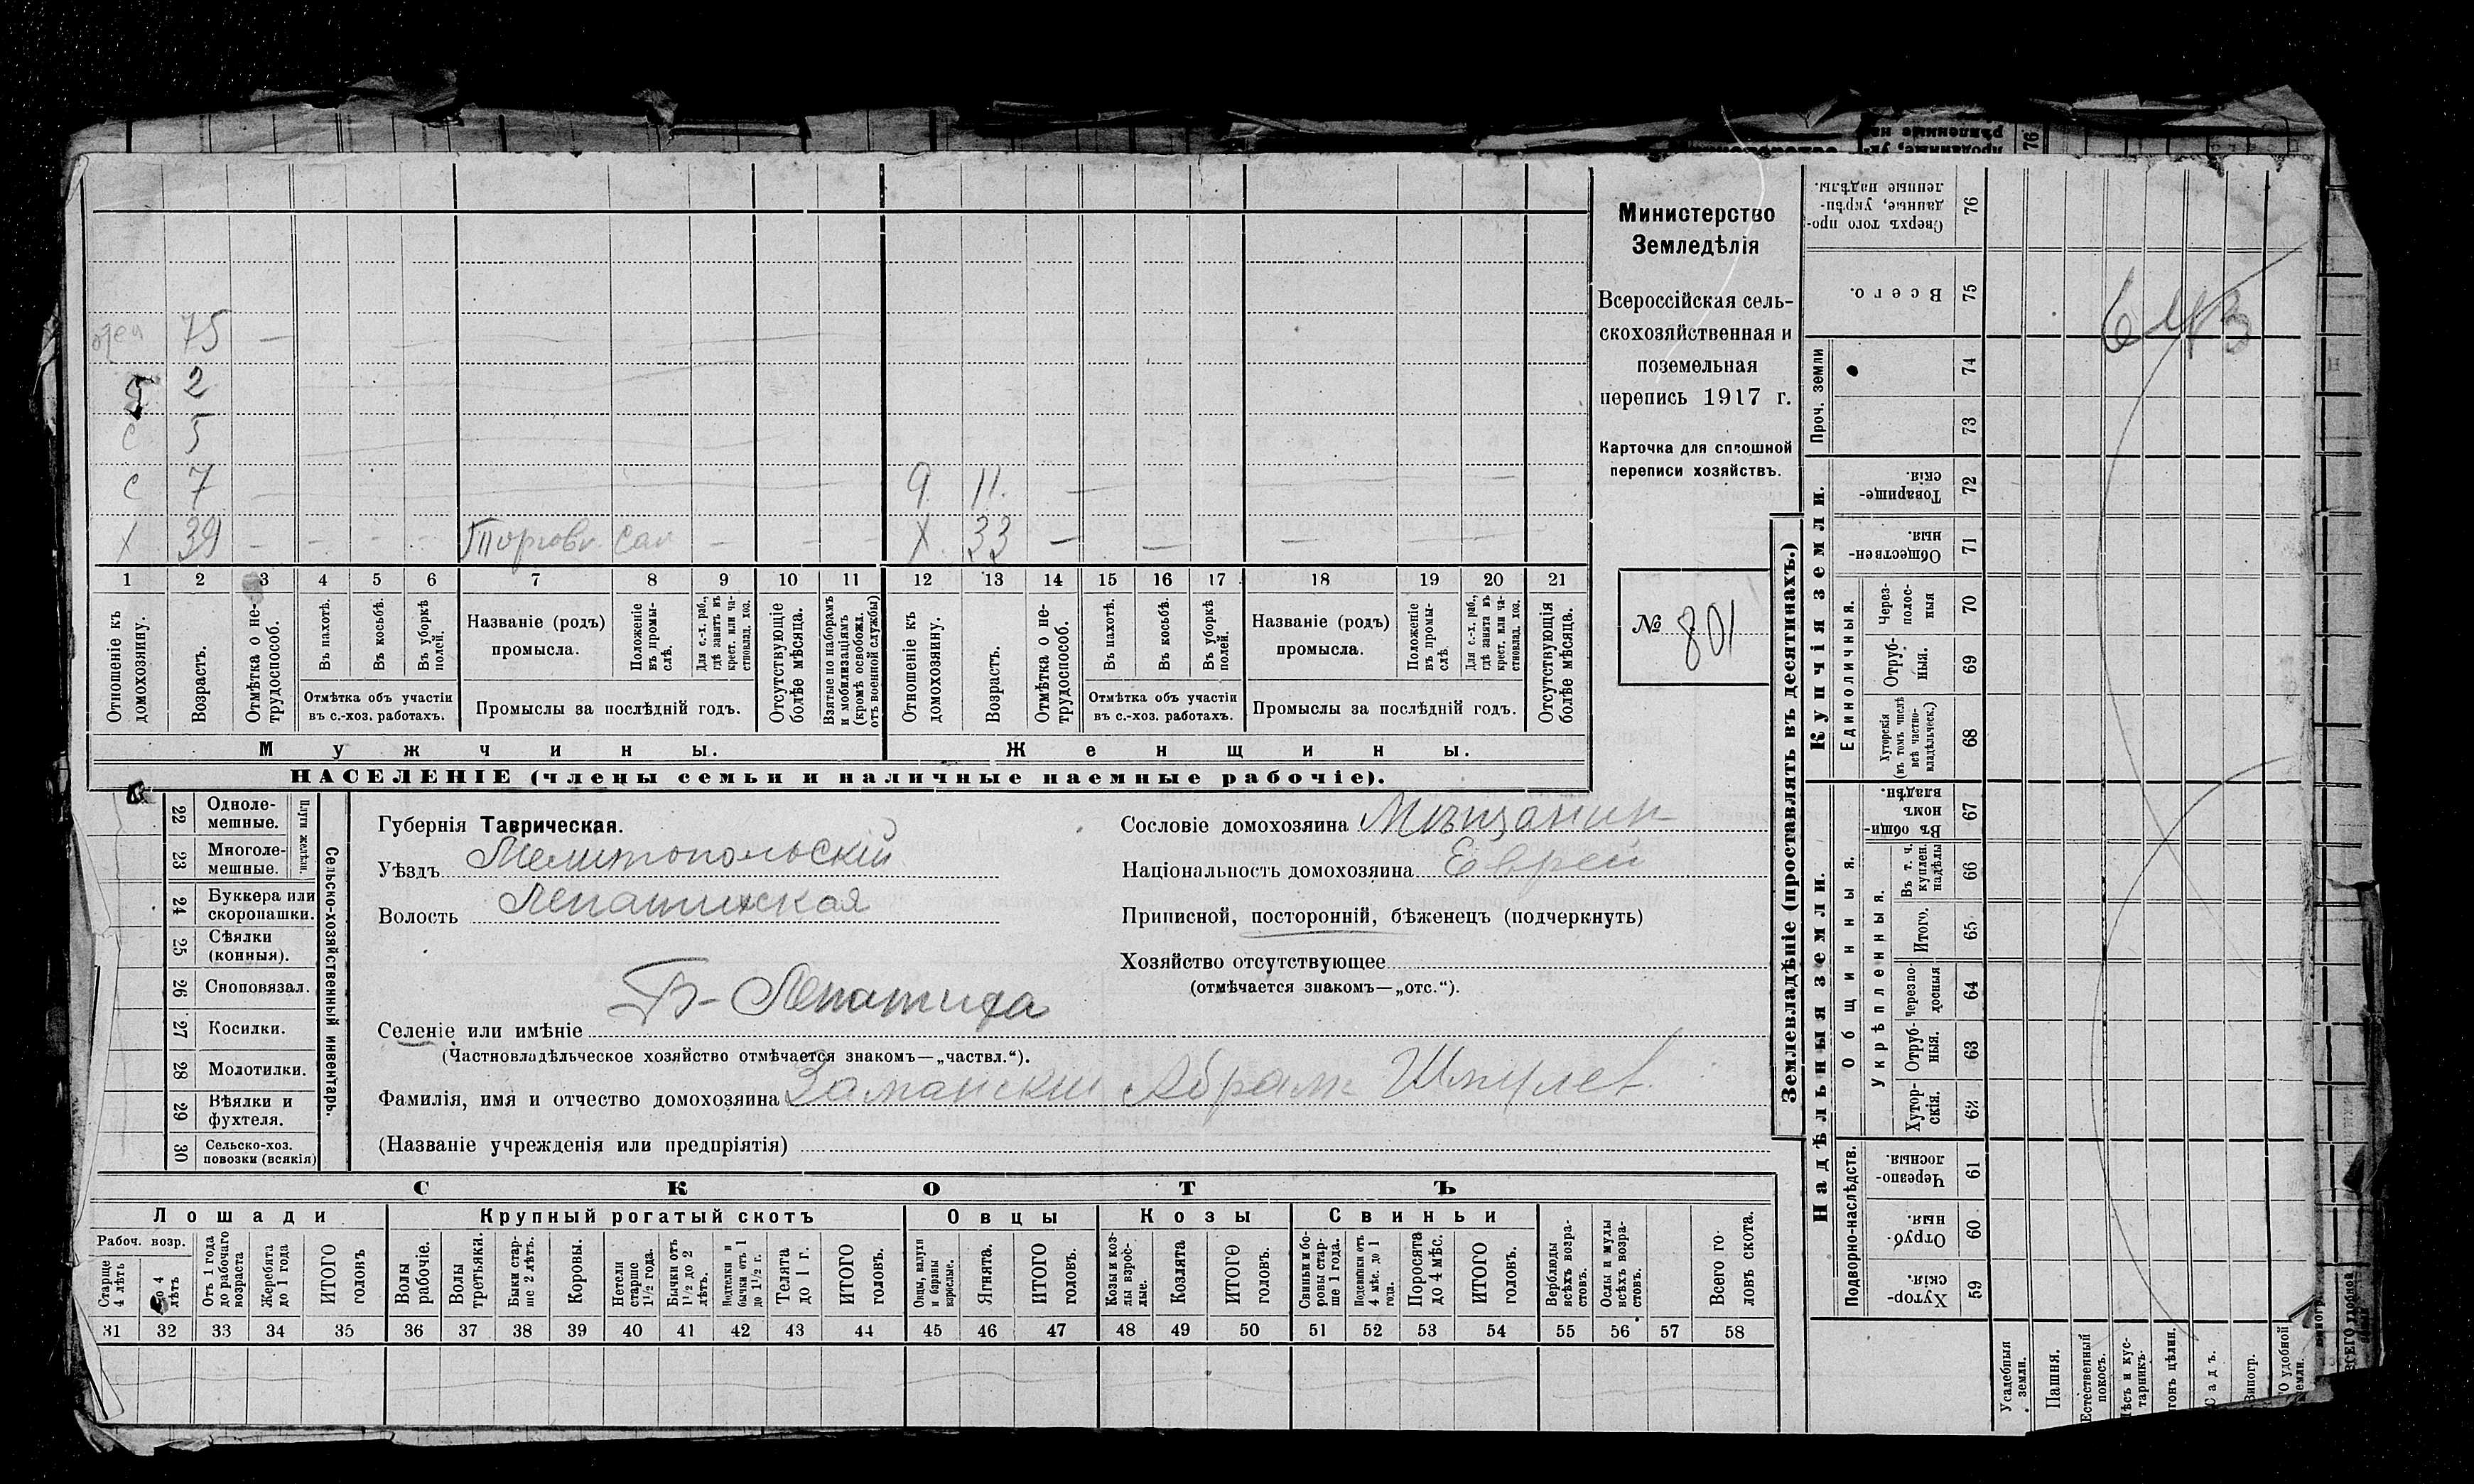 75 —
2
с 5
с 7
9. 11. —
х 39 — — — — Торговл. Сам — — —
х. 33 — — — —
1 2 3 4 5 6 7 8 9 10 11 12 13 14 15 16 17 18 19 20 21
Отношеніе къ домохозяину.
Возрастъ.
Отмѣтка о не-
трудоспособ.
Въ пахотѣ.
Въ косьбѣ.
Въ уборкѣ
полей.
Отмѣтка объ участіи
въ с.-хоз. работахъ.
Названіе (родъ)
промысла.
Положеніе
въ промы-
слѣ.
Для с.-х. раб.,
гдѣ занятъ въ
крест. или ча-
стновлад. хоз.
Промыслы за послѣдній годъ.
Отсутствующіе
болѣе мѣсяца.
Взятые по наборамъ
и мобилизаціямъ
(кромѣ освобожд.
отъ военной службы)
Отношеніе къ
домохозяину.
Возрастъ.
Отмѣтка о не-
трудоспособ.
Въ пахотѣ.
Въ косьбѣ.
Въ уборкѣ
полей.
Отмѣтка объ участіи
въ с.-хоз. работахъ.
Названіе (родъ)
промысла.
Положеніе
въ промы-
слѣ.
Для с.-х. раб.,
гдѣ занята въ
крест. или ча-
стновлад. хоз.
Промыслы за послѣдній годъ.
Отсутствующія
болѣе мѣсяца.
Мужчины.
Женщины.
НАСЕЛЕНІЕ (члены семьи и наличные наемные рабочіе).
Министерство
Земледѣлія
Всероссійская сель-
скохозяйственная и
поземельная
перепись 1917 г.
Карточка для сплошной
переписи хозяйствъ.
№ 801
22 Одноле-
мешные.
23 Многоле-
мешные.
Плуги желѣзн.
24 Буккера или
скоропашки.
25 Сѣялки
(конныя).
26 Сноповязал.
27 Косилки.
28 Молотилки.
29 Вѣялки и
фухтеля.
30 Сельско-хоз.
повозки (всякія)
Сельско-хозяйственный инвентарь.
Губернія Таврическая.
Уѣздъ Мелитопольскій
Волость Лепатихская
Селеніе или имѣніе Б-Лепатиха
(Частновладѣльческое хозяйство отмѣчается знакомъ—„частвл.“).
Фамилія, имя и отчество домохозяина Заманскій Абрам Шмулев.
(Названіе учрежденія или предпріятія)
Сословіе домохозяина Мѣщанин
Національность домохозяина Еврей
Приписной, посторонній, бѣженецъ (подчеркнуть)
Хозяйство отсутствующее
(отмѣчается знакомъ—„отс.“).
СКОТЪ
Лошади
Рабоч. возр.
Старше
4 лѣтъ
До 4
лѣтъ
Отъ 1 года
до рабочаго
возраста
Жеребята
до 1 года
ИТОГО
головъ
Крупный рогатый скотъ
Волы
рабочіе.
Волы
третьяки.
Быки стар-
ше 2 лѣтъ.
Коровы.
Нетели
старше
1½ года.
Бычки отъ
1½ до 2
лѣтъ.
Подтелки и
бычки отъ 1
до 1½ г.
Телята
до 1 г.
ИТОГО
головъ.
Овцы
Овцы, валухи
и бараны
взрослые.
Ягнята.
ИТОГО
головъ.
Козы
Козы и коз-
лы взрос-
лые.
Козлята
ИТОГО
головъ.
Свиньи
Свиньи и бо-
ровы стар-
ше 1 года.
Подсвинки отъ
4 мѣс. до 1
года.
Поросята
до 4 мѣс.
ИТОГО
головъ.
Верблюды
всѣхъ возра-
стовъ.
Ослы и мулы
всѣхъ возра-
стовъ.
Всего го-
ловъ скота.
31 32 33 34 35 36 37 38 39 40 41 42 43 44 45 46 47 48 49 50 51 52 53 54 55 56 57 58
Землевладѣніе (проставлять въ десятинахъ.)
Сверхъ того про-
данные, укрѣп-
ленные надѣлы.
76
Всего.
75
Проч. земли
74
73
Купчія земли.
Товарище-
скія.
72
Обществен-
ныя.
71
Единоличныя.
Через-
полос-
ныя
70
Отруб-
ныя.
69
Хуторскія
(въ томъ числѣ
всѣ частно-
владѣльческ.)
68
Надѣльныя земли.
Общинныя.
Въ общин-
номъ
владѣн.
67
укрѣпленныя.
Въ т. ч.
куплен.
надѣлы
66
Итого.
65
Черезпо-
лосныя
64
Отруб-
ныя.
63
Хутор-
скія.
62
Подворно-наслѣдств.
Черезпо-
лосныя.
61
Отруб-
ныя.
60
Хутор-
скія.
59
Усадебныя
земли.
Пашня.
Естественный
покосъ.
Лѣсъ и кус-
тарникъ.
Садъ.
Виногр.